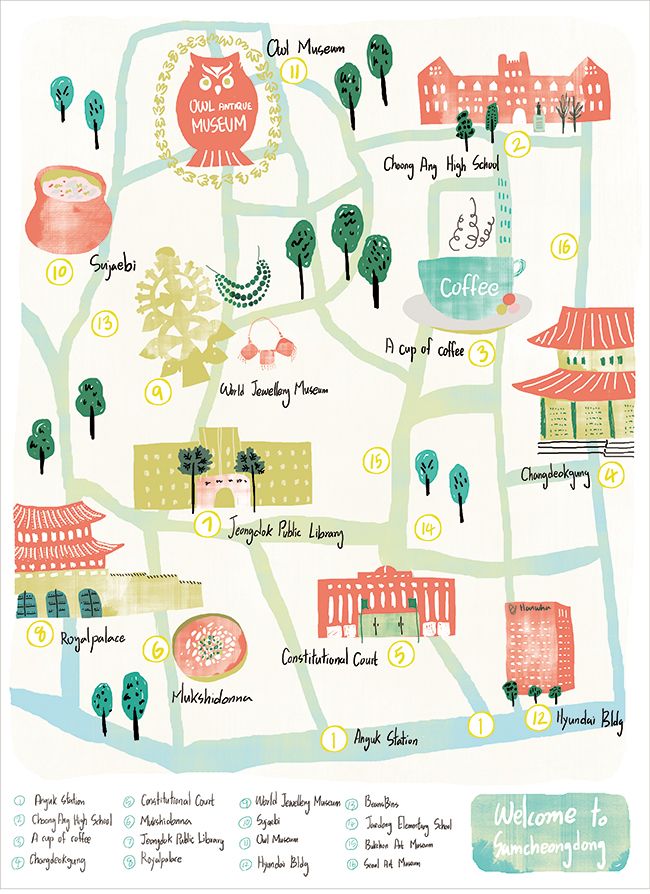 Owl Museum
11
OWL ANTIQUE
MUSEUM
2
Choong Ang High School
10
Sujaebi
16
Coffee
13
A cup of coffee
3
9
World Jewellery Museum
15
Changdeokgung
4
14
7
Jeongdok Public Library
8
Royalpalace
6
Mukshidonna
Constitutional Court
5
Hanwha
12
Hyundai Bldg
1
Anguk Station
1
1 Anguk Station
2 Choong Ang High School
3 A cup of coffee
4 Changdeokgung
5 Constitutional Court
6 Mukshidonna
7 Jeongdok Public Library
8 Royalpalace
9 World Jewellery Museum
10 Sujaebi
11 Owl Museum
12 Hyundai Bldg
13 BeansBins
14 Jaedong Elementary School
15 Bukchon Art Museum
16 Seoul Art Museum
Welcome to
Samcheongdong